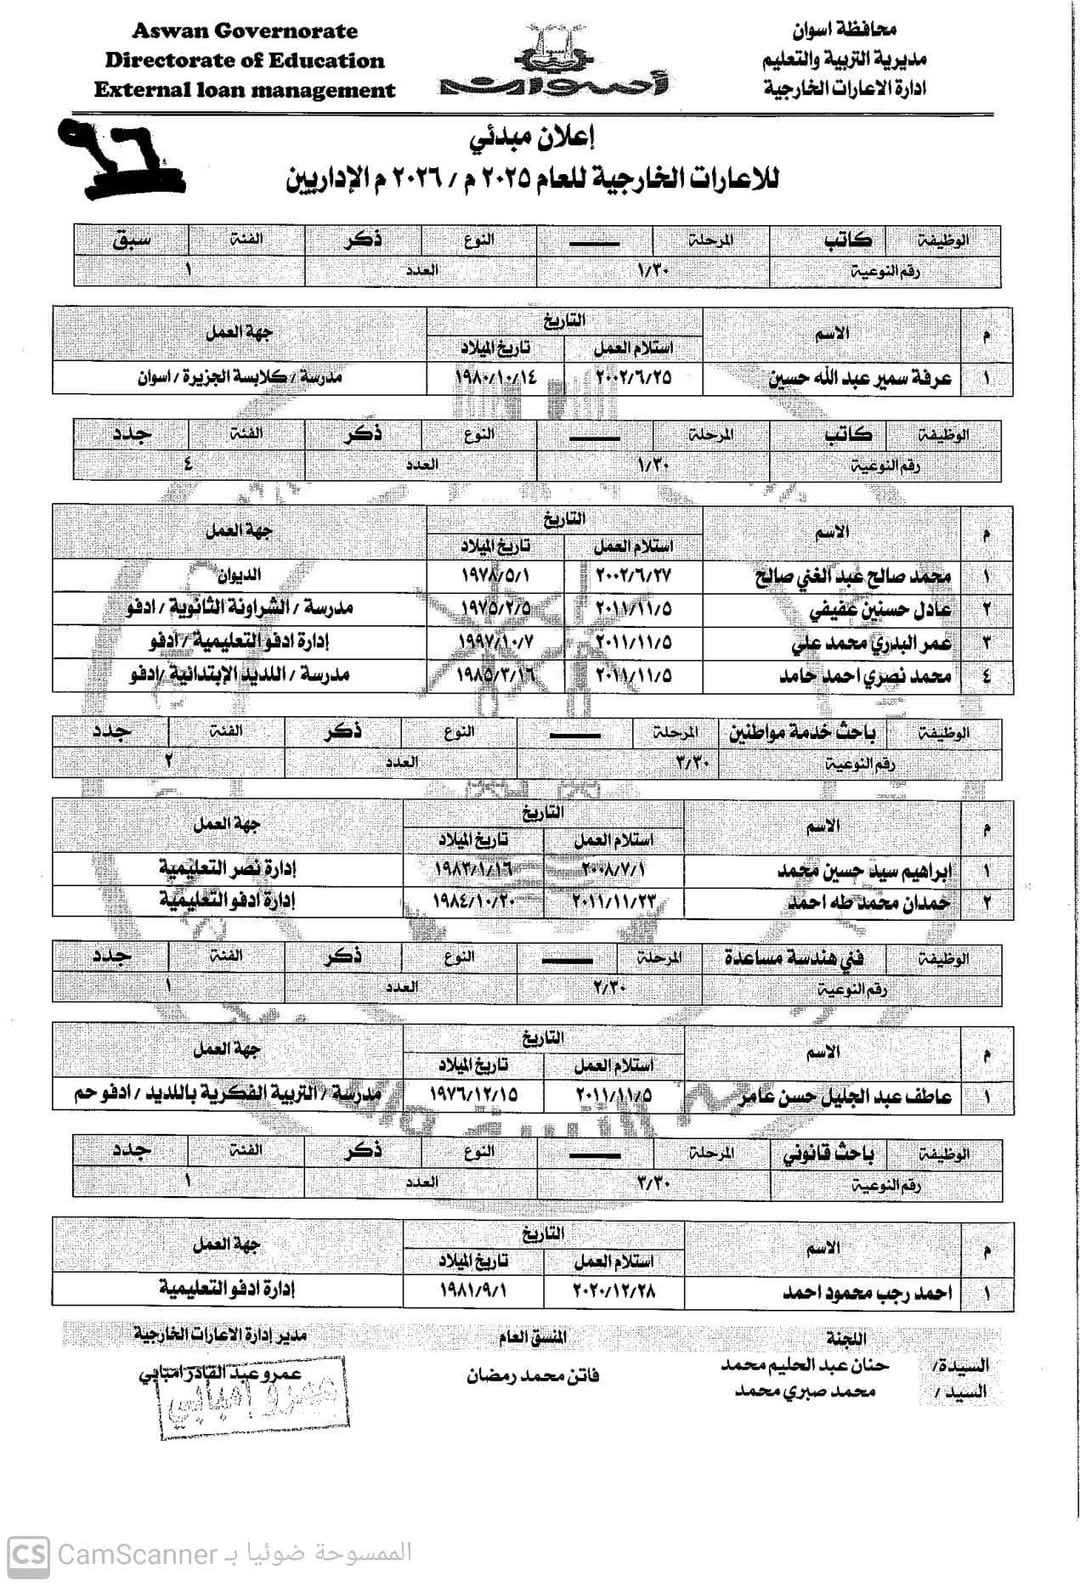 Aswan Governorate
Directorate of Education
External loan management
أسوان
محافظة اسوان
مديرية التربية والتعليم
ادارة الاعارات الخارجية
٩٦
إعلان مبدئي
للاعارات الخارجية للعام ٢٠٢٥ م / ٢٠٢٦ م الإداريين
الوظيفة كاتب المرحلة ـــــ النوع ذكر الفئة سبق
رقم النوعية ١/٣٠ العدد ١
م الاسم التاريخ جهة العمل
استلام العمل تاريخ الميلاد
١ عرفة سمير عبد الله حسين ٢٠٠٢/٦/٢٥ ١٩٨٠/١٠/١٤ مدرسة / كلابسة الجزيرة / اسوان
الوظيفة كاتب المرحلة ـــــ النوع ذكر الفئة جدد
رقم النوعية ١/٣٠ العدد ٤
م الاسم التاريخ جهة العمل
استلام العمل تاريخ الميلاد
١ محمد صالح عبد الغني صالح ٢٠٠٢/٦/٢٧ ١٩٧٨/٥/١ الديوان
٢ عادل حسنين عفيفي ٢٠١١/١١/٥ ١٩٧٥/٢/٥ مدرسة / الشراونة الثانوية / ادفو
٣ عمر البدري محمد علي ٢٠١١/١١/٥ ١٩٩٧/١٠/٧ إدارة ادفو التعليمية / ادفو
٤ محمد نصري احمد حامد ٢٠١١/١١/٥ ١٩٨٥/٣/١٦ مدرسة / اللديد الإبتدائية /ادفو
الوظيفة باحث خدمة مواطنين المرحلة ـــــ النوع ذكر الفئة جدد
رقم النوعية ٣/٣٠ العدد ٢
م الاسم التاريخ جهة العمل
استلام العمل تاريخ الميلاد
١ ابراهيم سيد حسين محمد ٢٠٠٨/٧/١ ١٩٨٣/١/١٦ إدارة نصر التعليمية
٢ حمدان محمد طه احمد ٢٠١١/١١/٢٣ ١٩٨٤/١٠/٢٠ إدارة ادفو التعليمية
الوظيفة فني هندسة مساعدة المرحلة ـــــ النوع ذكر الفئة جدد
رقم النوعية ٢/٣٠ العدد ١
م الاسم التاريخ جهة العمل
استلام العمل تاريخ الميلاد
١ عاطف عبد الجليل حسن عامر ٢٠١١/١١/٥ ١٩٧٦/١٢/١٥ مدرسة / التربية الفكرية باللديد / ادفو حم
الوظيفة باحث قانوني المرحلة ـــــ النوع ذكر الفئة جدد
رقم النوعية ٣/٣٠ العدد ١
م الاسم التاريخ جهة العمل
استلام العمل تاريخ الميلاد
١ احمد رجب محمود احمد ٢٠٢٠/١٢/٢٨ ١٩٨١/٩/١ إدارة ادفو التعليمية
اللجنة المنسق العام مدير إدارة الاعارات الخارجية
السيدة/ حنان عبد الحليم محمد فاتن محمد رمضان عمرو عبد القادر امبابي
السيد / محمد صبري محمد
عمرو إمبابي
CS CamScanner الممسوحة ضوئيا بـ